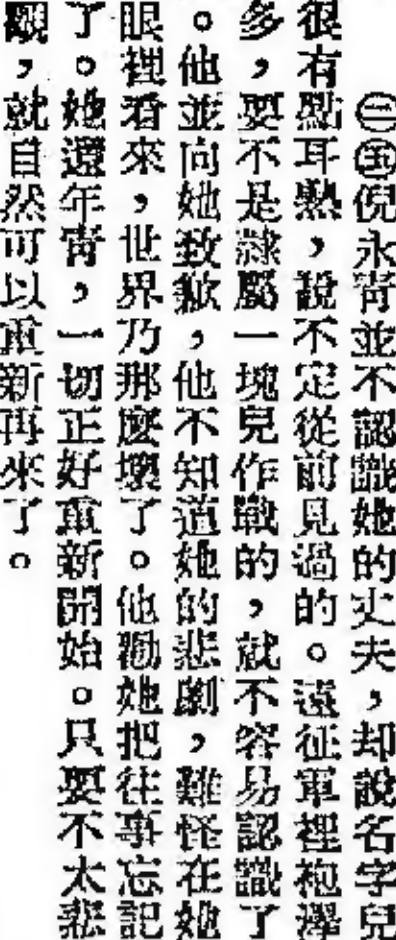 ㊀㊄倪永青並不認識她的丈夫，却說名字兒
很有點耳熱，說不定從前見過的。遠征軍裡袍澤
多，要不是隸屬一塊兒作戰的，就不容易認識了
。他並向她致歉，他不知道她的悲劇，難怪在她
眼裡看來，世界乃那麼壞了。他勸她把往事忘記
了。她還年青，一切正好重新開始。只要不太悲
觀，就自然可以重新再來了。